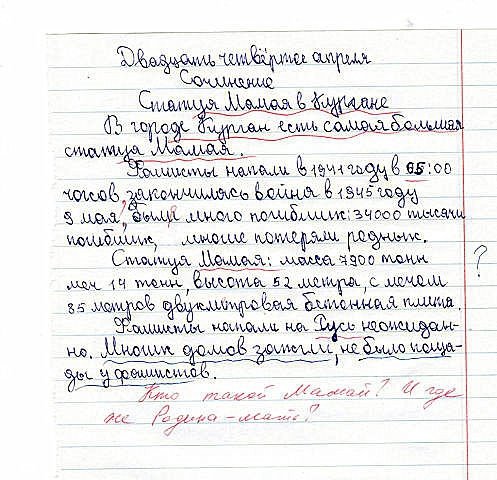 Двадцать четвёртое апреля
Сочинение
Статуя Мамая в Кургане
В городе Курган есть самая большая
статуя Мамая.
Фашисты напали в 1941 году в 05:00
часов, закончилась война в 1945 году
9 мая, были много погибших: 34000 тысячи
погибших, многие потеряли родных.
Статуя Мамая: масса 7900 тонн
меч 14 тонн, высота 52 метра, с мечом
85 метров двухметровая бетонная плита.
Фашисты напали на Русь неожидан-
но. Многих домов зажгли, не было поща-
ды у фашистов.
?
Кто такой Мамай? И где
же Родина-мать?